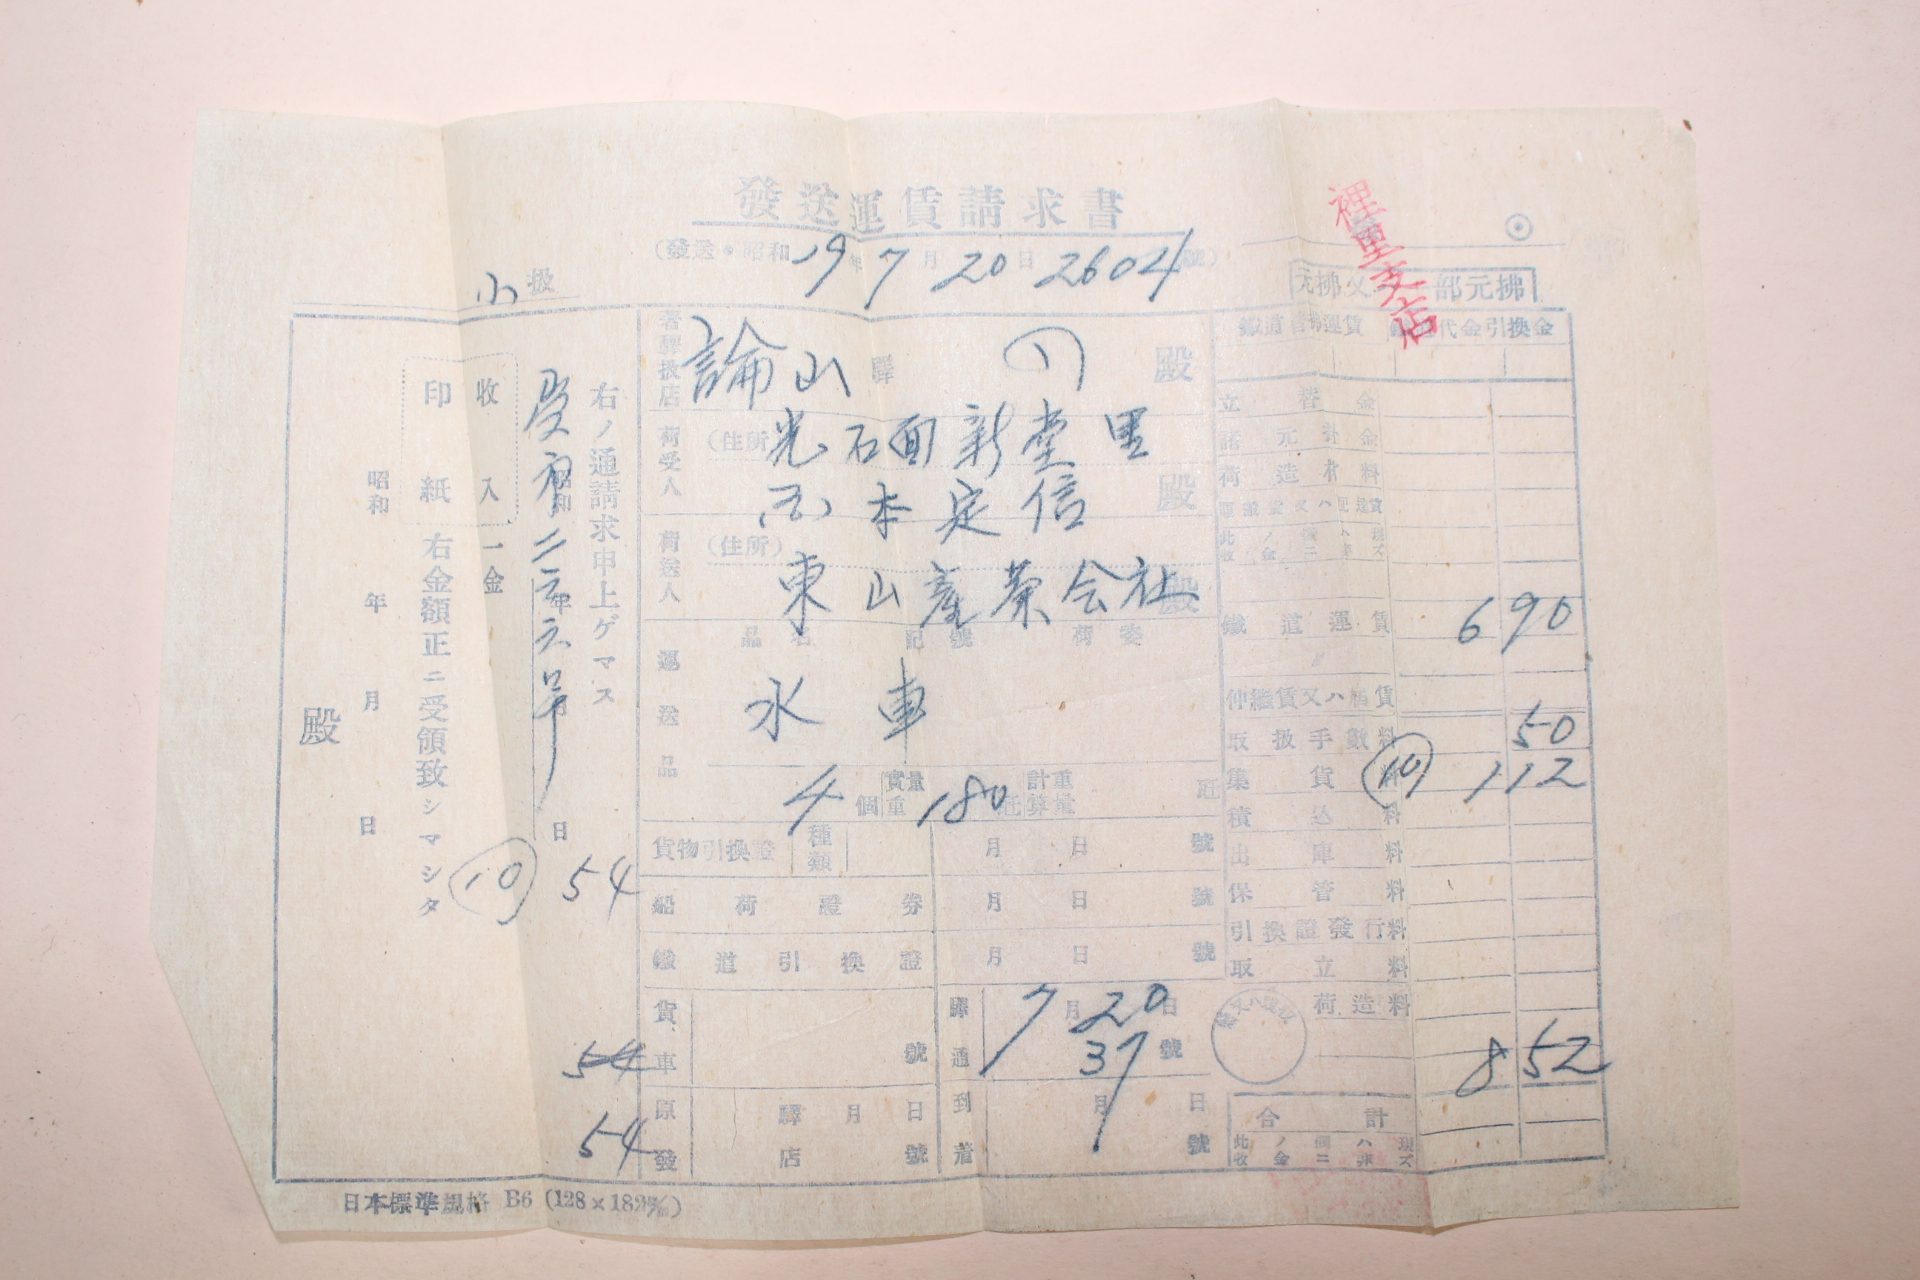 發送運賃請求書
(發送・昭和 19年 7月 20日 2604號)
小扱
裡里支店
元拂又 部元拂
著驛扱店 論山驛 殿
荷受人 (住所) 光石面新堂里
本定信 殿
荷送人 (住所)
東山産業会社 殿
運送品 品名 記號 荷姿
水車
4個 實量重量 180瓩 計算重量 瓩
貨物引換證 種類 月 日 號
船荷證券 月 日 號
鐵道引換證 月 日 號
貨車 號 驛通 7月20日 37號
原發 驛店 月 日 號 到着 月 日 號
鐵道着拂運賃 代金引換金
立替金
諸元掛金
荷造料
鐵道運賃 690
〃
仲繼賃又ハ艀賃
取扱手數料 50
集貨料 (10) 112
積込料
出庫料
保管料
引換證發行料
取立料
荷造料
852
合計
右ノ通請求申上ゲマス
昭和 年 月 日
54
54
54
(10)
收入印紙
一金
右金額正ニ受領致シマシタ
昭和 年 月 日
殿
日本標準規格 B6 (128×182㎜)